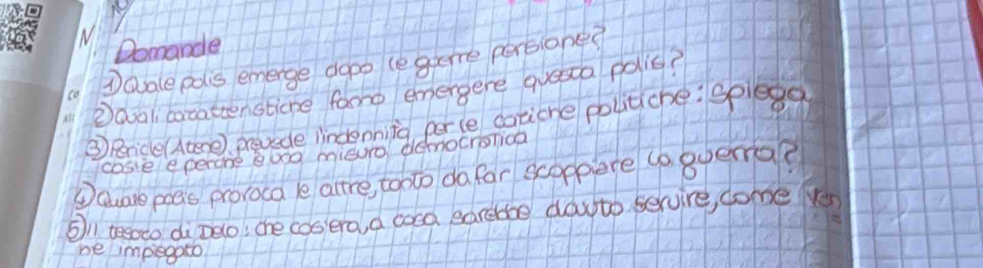 Domande
1) Quale polis emerge dopo le guerre persiane?
2) Quali caratteristiche fanno emergere questa polis?
3) Pericle (Atene) prevede l'indennità per le cariche politiche: spiega
cos'è e perché è una misura democratica
4) Quale polis provoca le altre, tanto da far scoppiare la guerra?
5) Il tesoro di Delo: che cos'era, a cosa sarebbe dovuto servire, come ven
ne impiegato